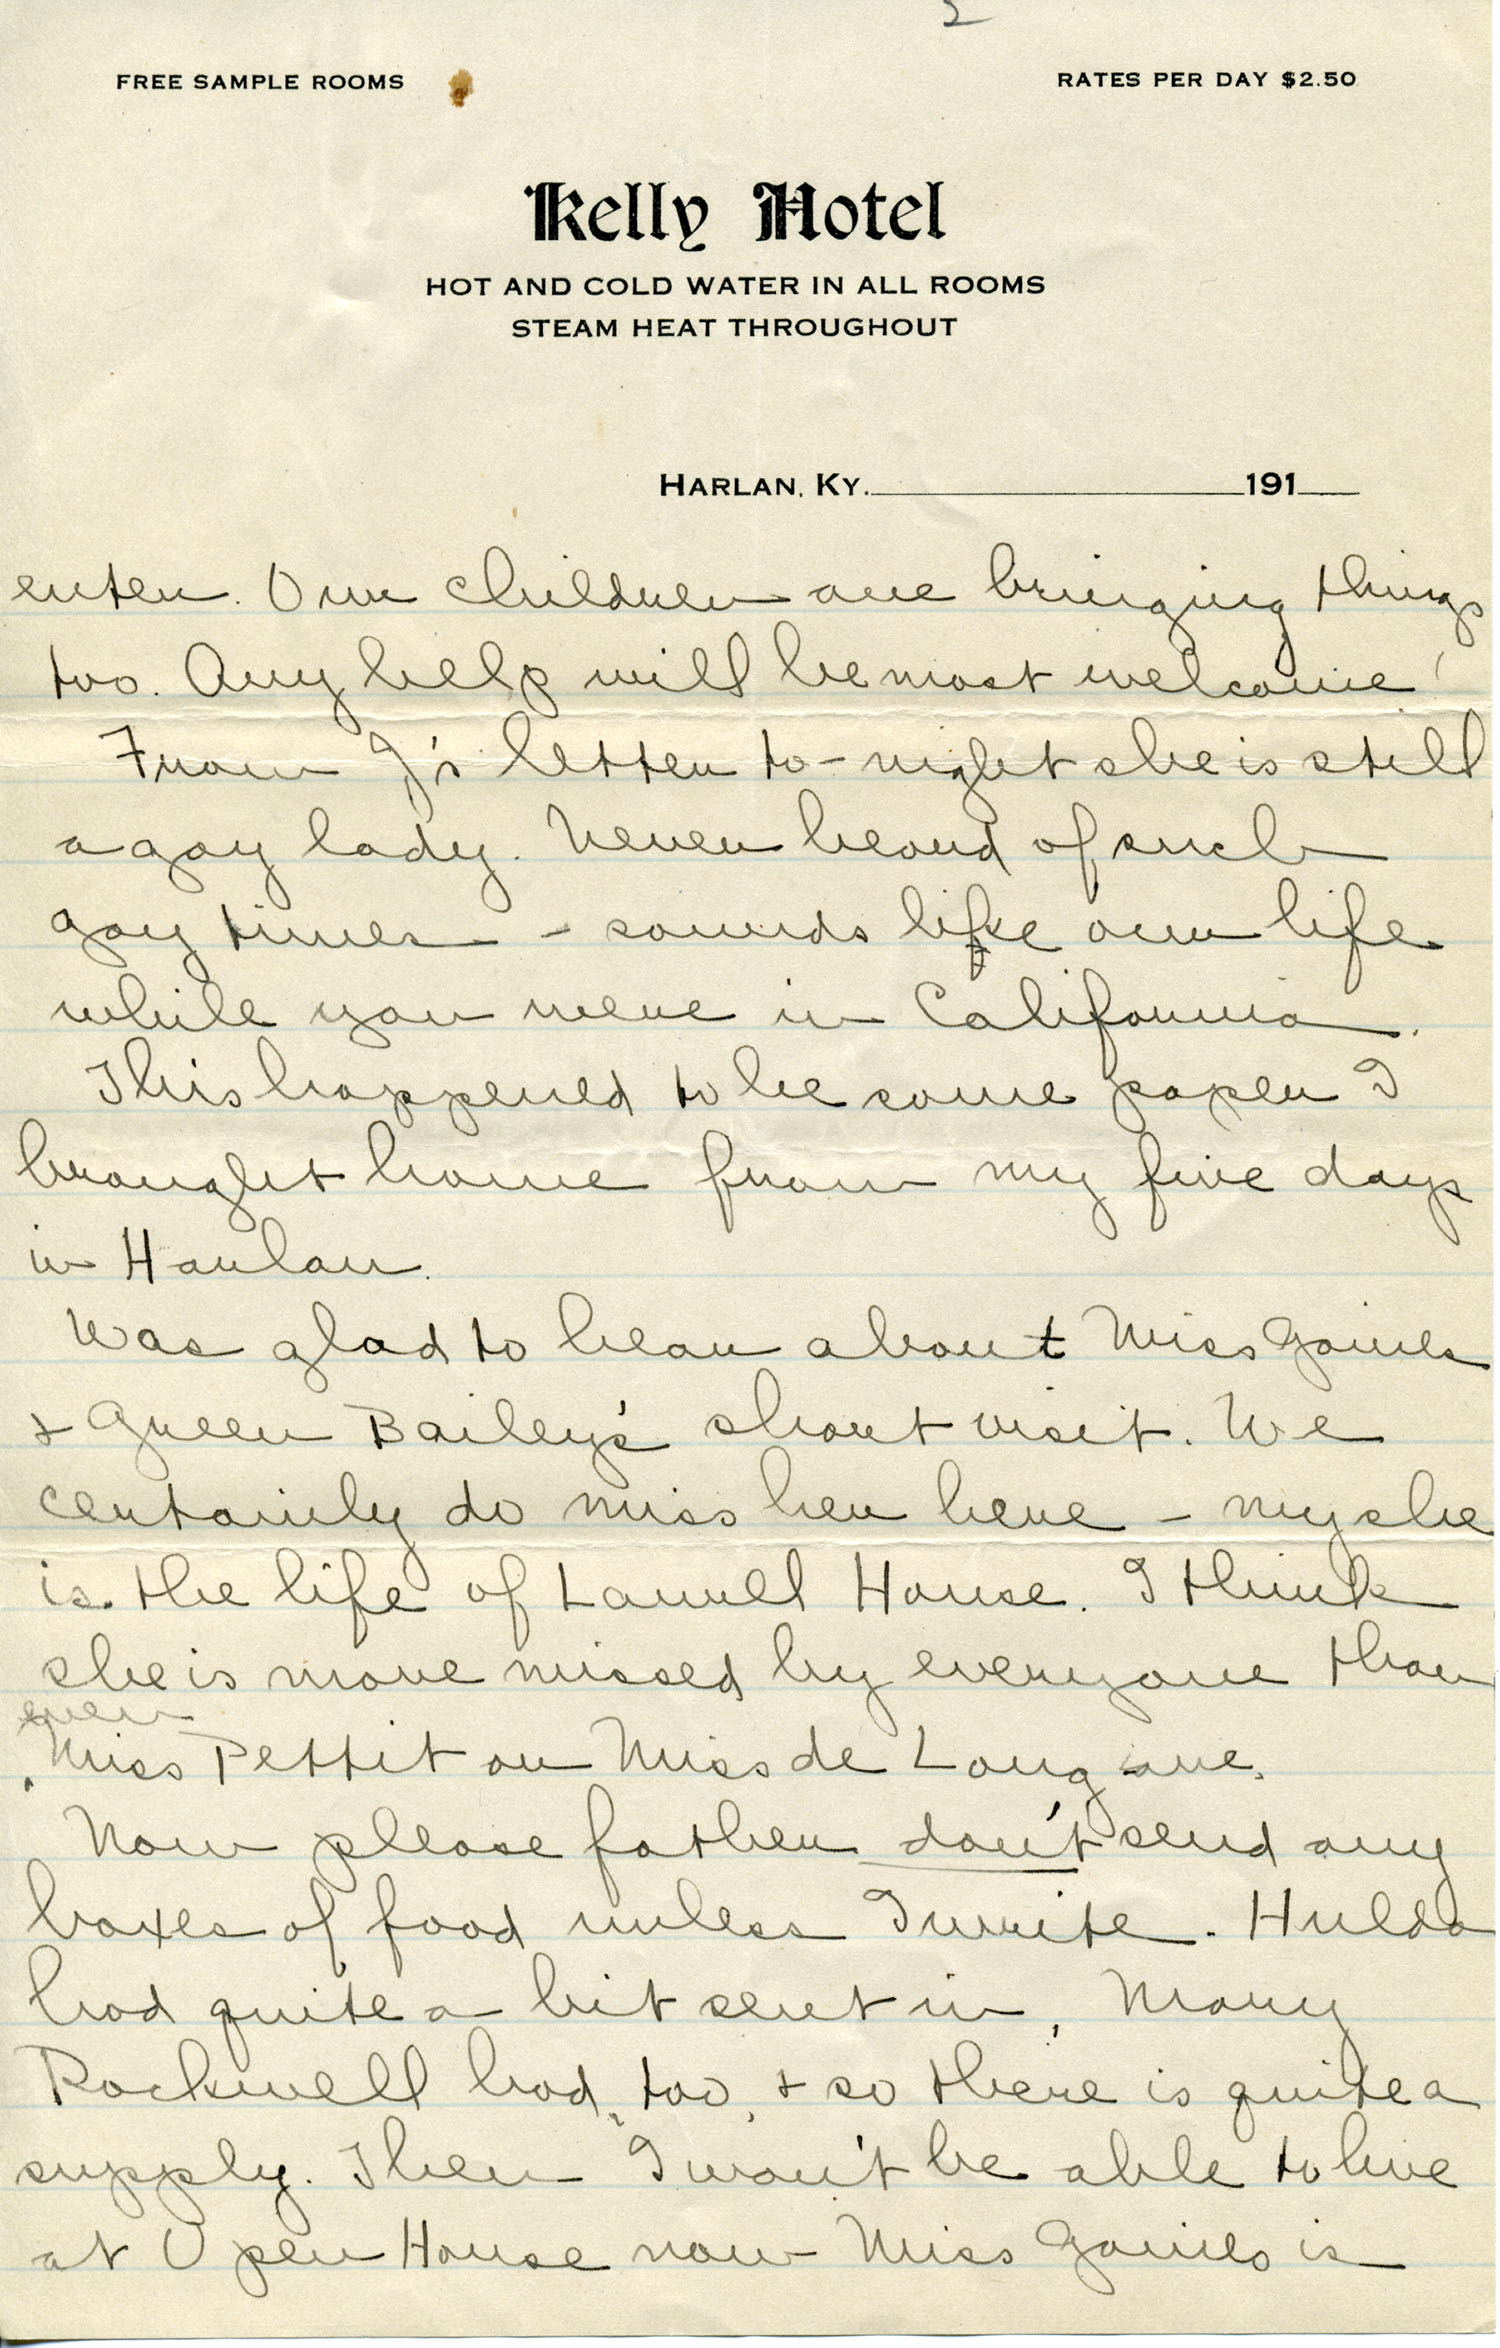 2
FREE SAMPLE ROOMS RATES PER DAY $2.50
Kelly Hotel
HOT AND COLD WATER IN ALL ROOMS
STEAM HEAT THROUGHOUT
HARLAN, KY. 191
enter. Our children are bringing things
too. Any help will be most welcome!
From J's letter to-night she is still
a gay lady. Never heard of such
gay times - sounds like our life
while you were in California.
This happened to be some paper I
brought home from my five days
in Harlan.
Was glad to hear about Miss Gaines
& Green Bailey's short visit. We
certainly do miss her here - my she
is the life of Laurell House. I think
she is more missed by everyone than
even
Miss Pettit or Miss de Long are.
Now please father don't send any
boxes of food unless I write. Hulda
had quite a bit sent in, Mary
Rockwell had, too, & so there is quite a
supply. Then I won't be able to live
at Open House now Miss Gaines is